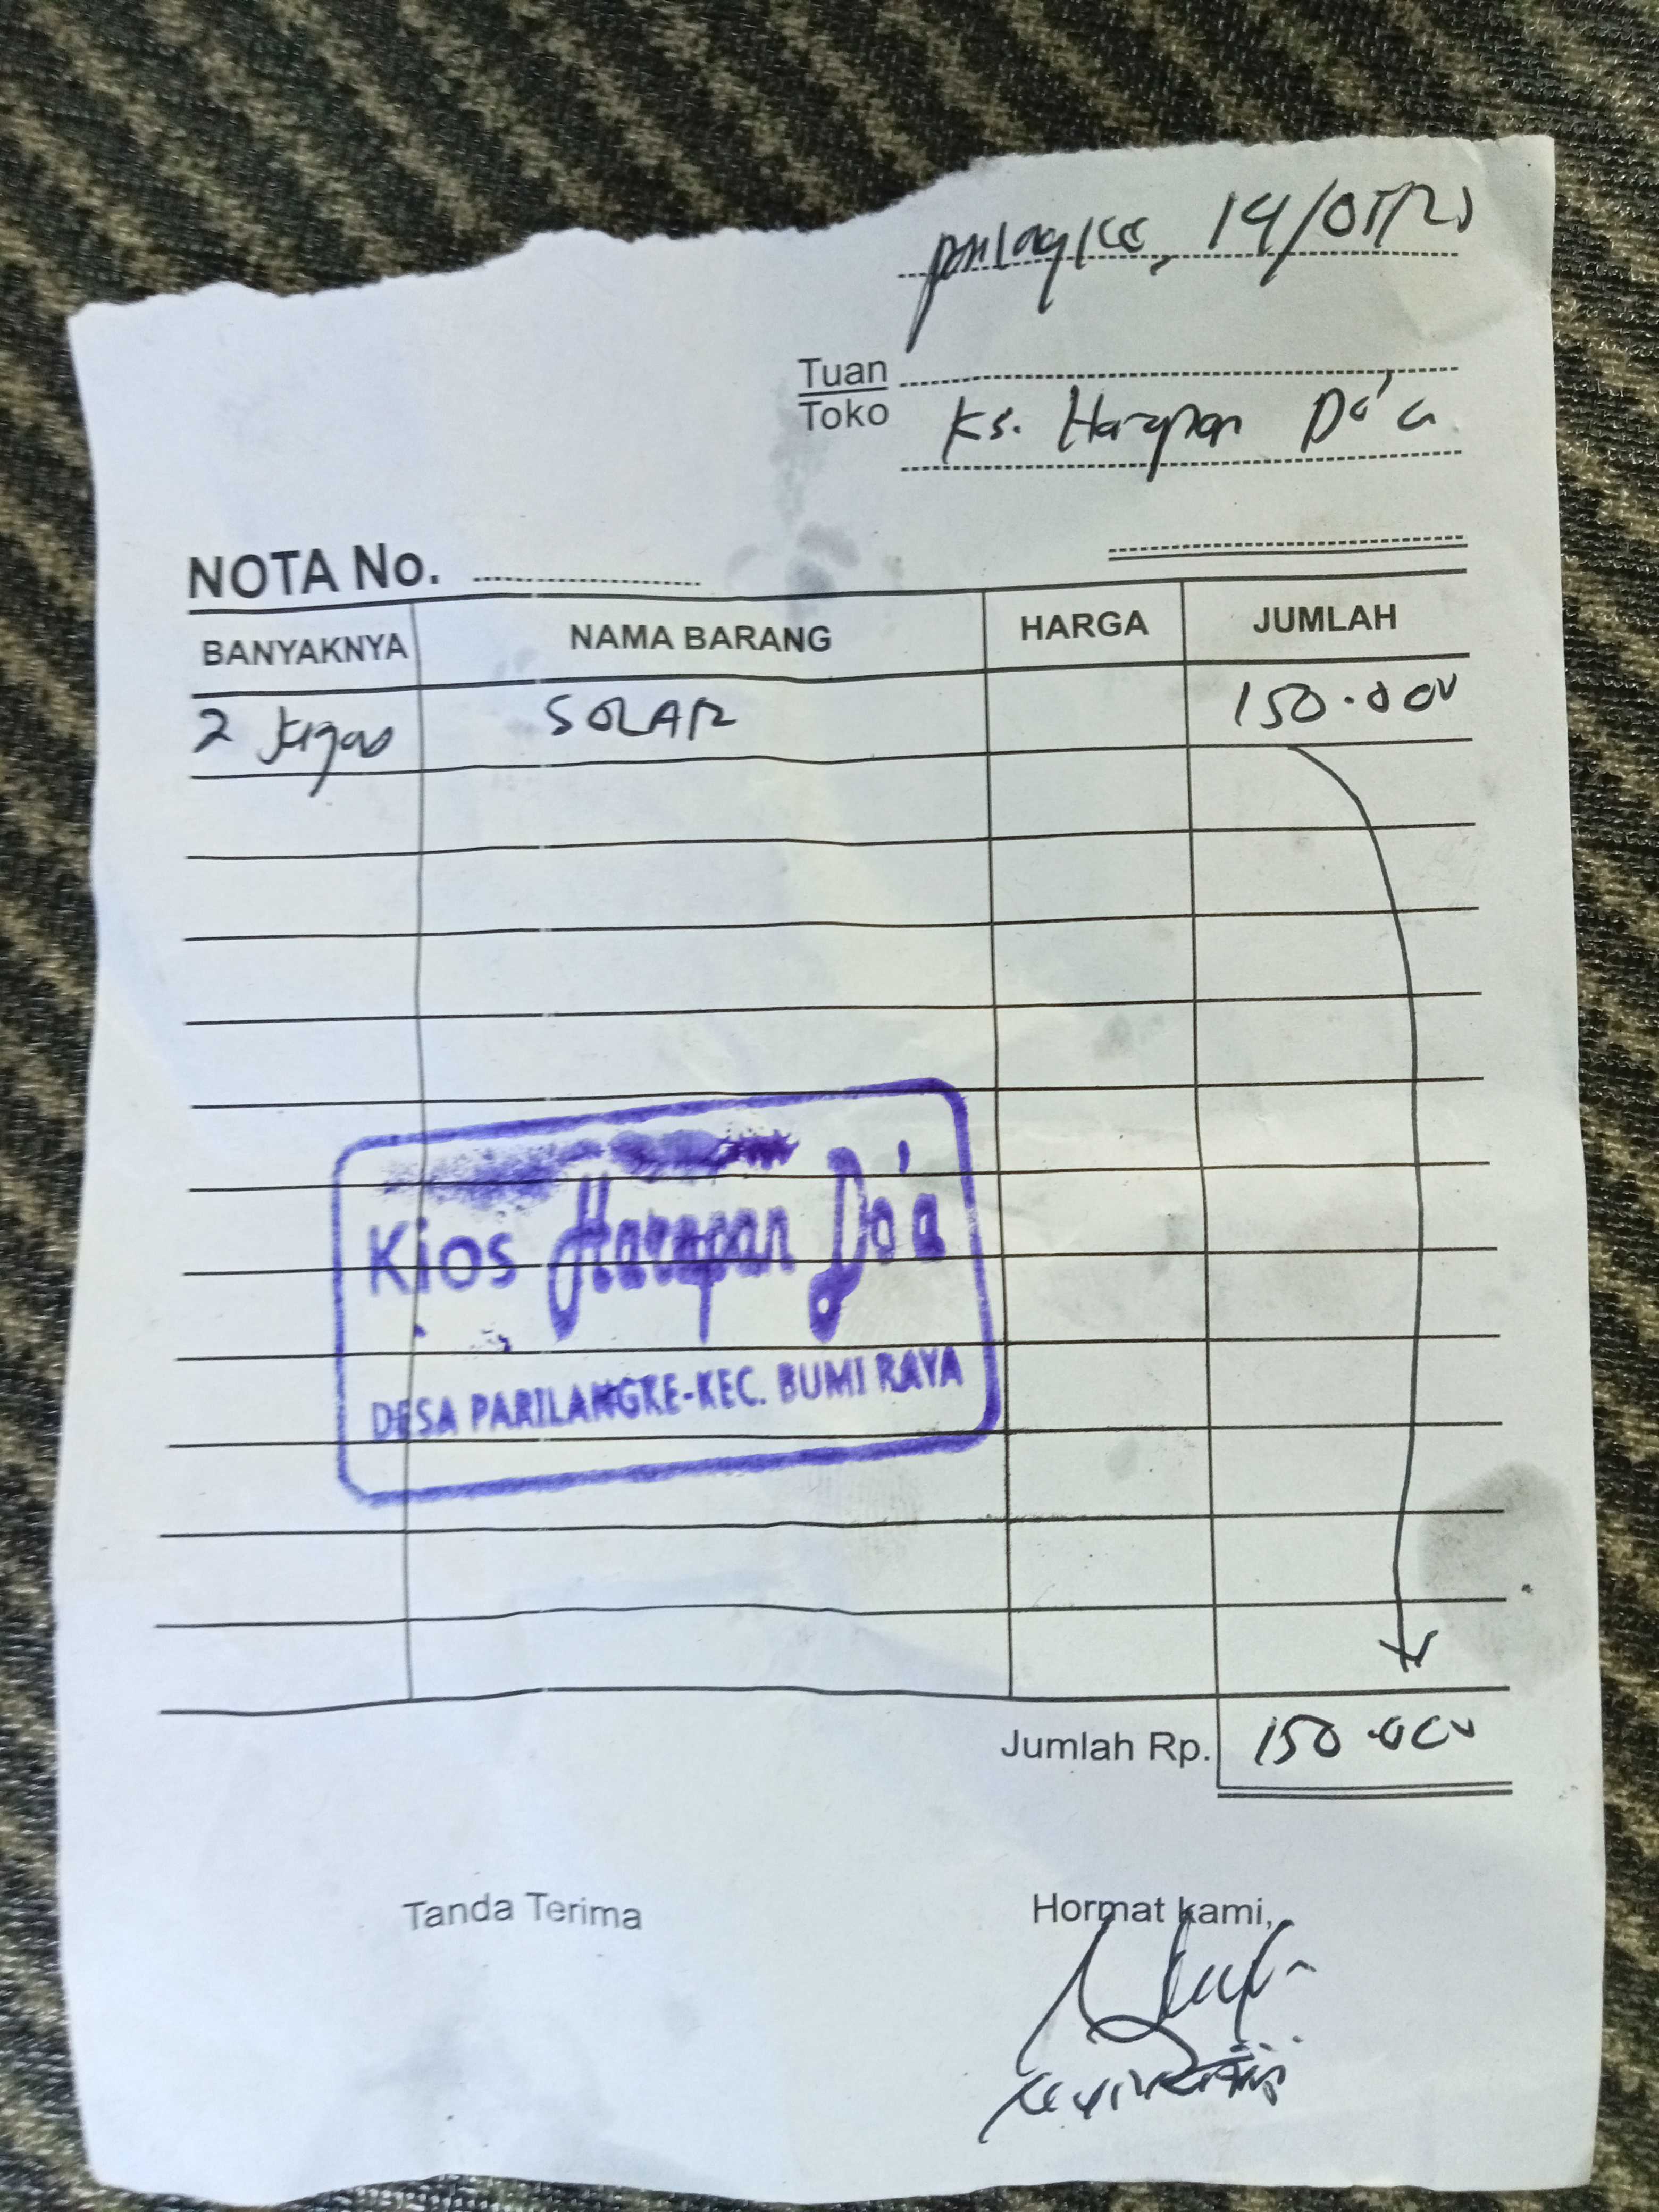 Parilangke, 14/05/20
Tuan
Toko Ks. Harapan Do'a
NOTA No.
BANYAKNYA NAMA BARANG HARGA JUMLAH
2 SOLAR 150.000
Kios Harapan Do'a
DESA PARILANGKE-KEC. BUMI RAYA
Jumlah Rp. 150.000
Tanda Terima Hormat kami,